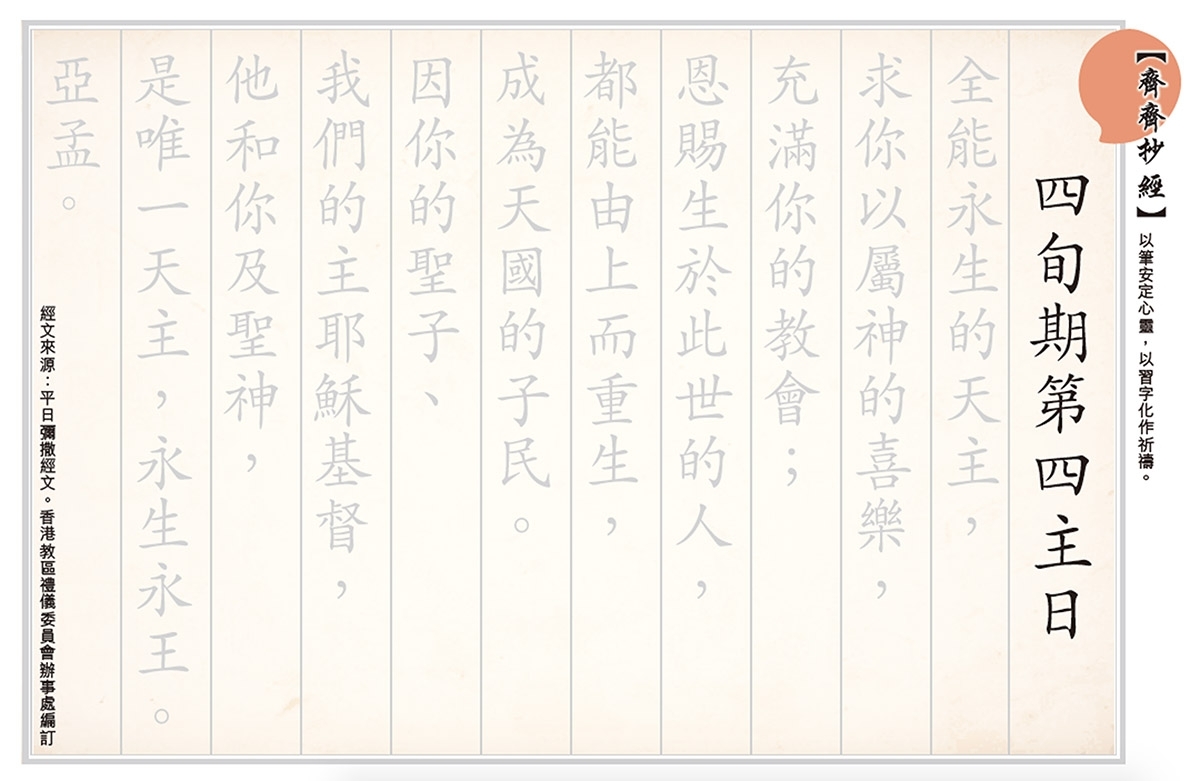 【齊齊抄經】
以筆安定心靈，以習字化作祈禱。
四旬期第四主日
全能永生的天主，
求你以屬神的喜樂，
充滿你的教會；
恩賜生於此世的人，
都能由上而重生，
成為天國的子民。
因你的聖子、
我們的主耶穌基督，
他和你及聖神，
是唯一天主，永生永王。
亞孟。
經文來源：平日彌撒經文。香港教區禮儀委員會辦事處編訂